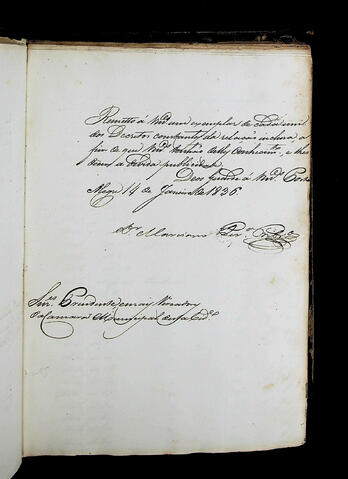 Remetto á Vmces um exemplar de cada um
dos Decretos constantes da relação incluza a
fim de que Vmces tenhão delles conhecimto, e lhes
dem a devida publicidade.
Deos Guarde á Vmces Porto
Alegre 14 de Janeiro de 1836
Dr Marciano Perª Ribrº
Snres Presidente e mais Vereadores
da Camara Municipal desta Cide